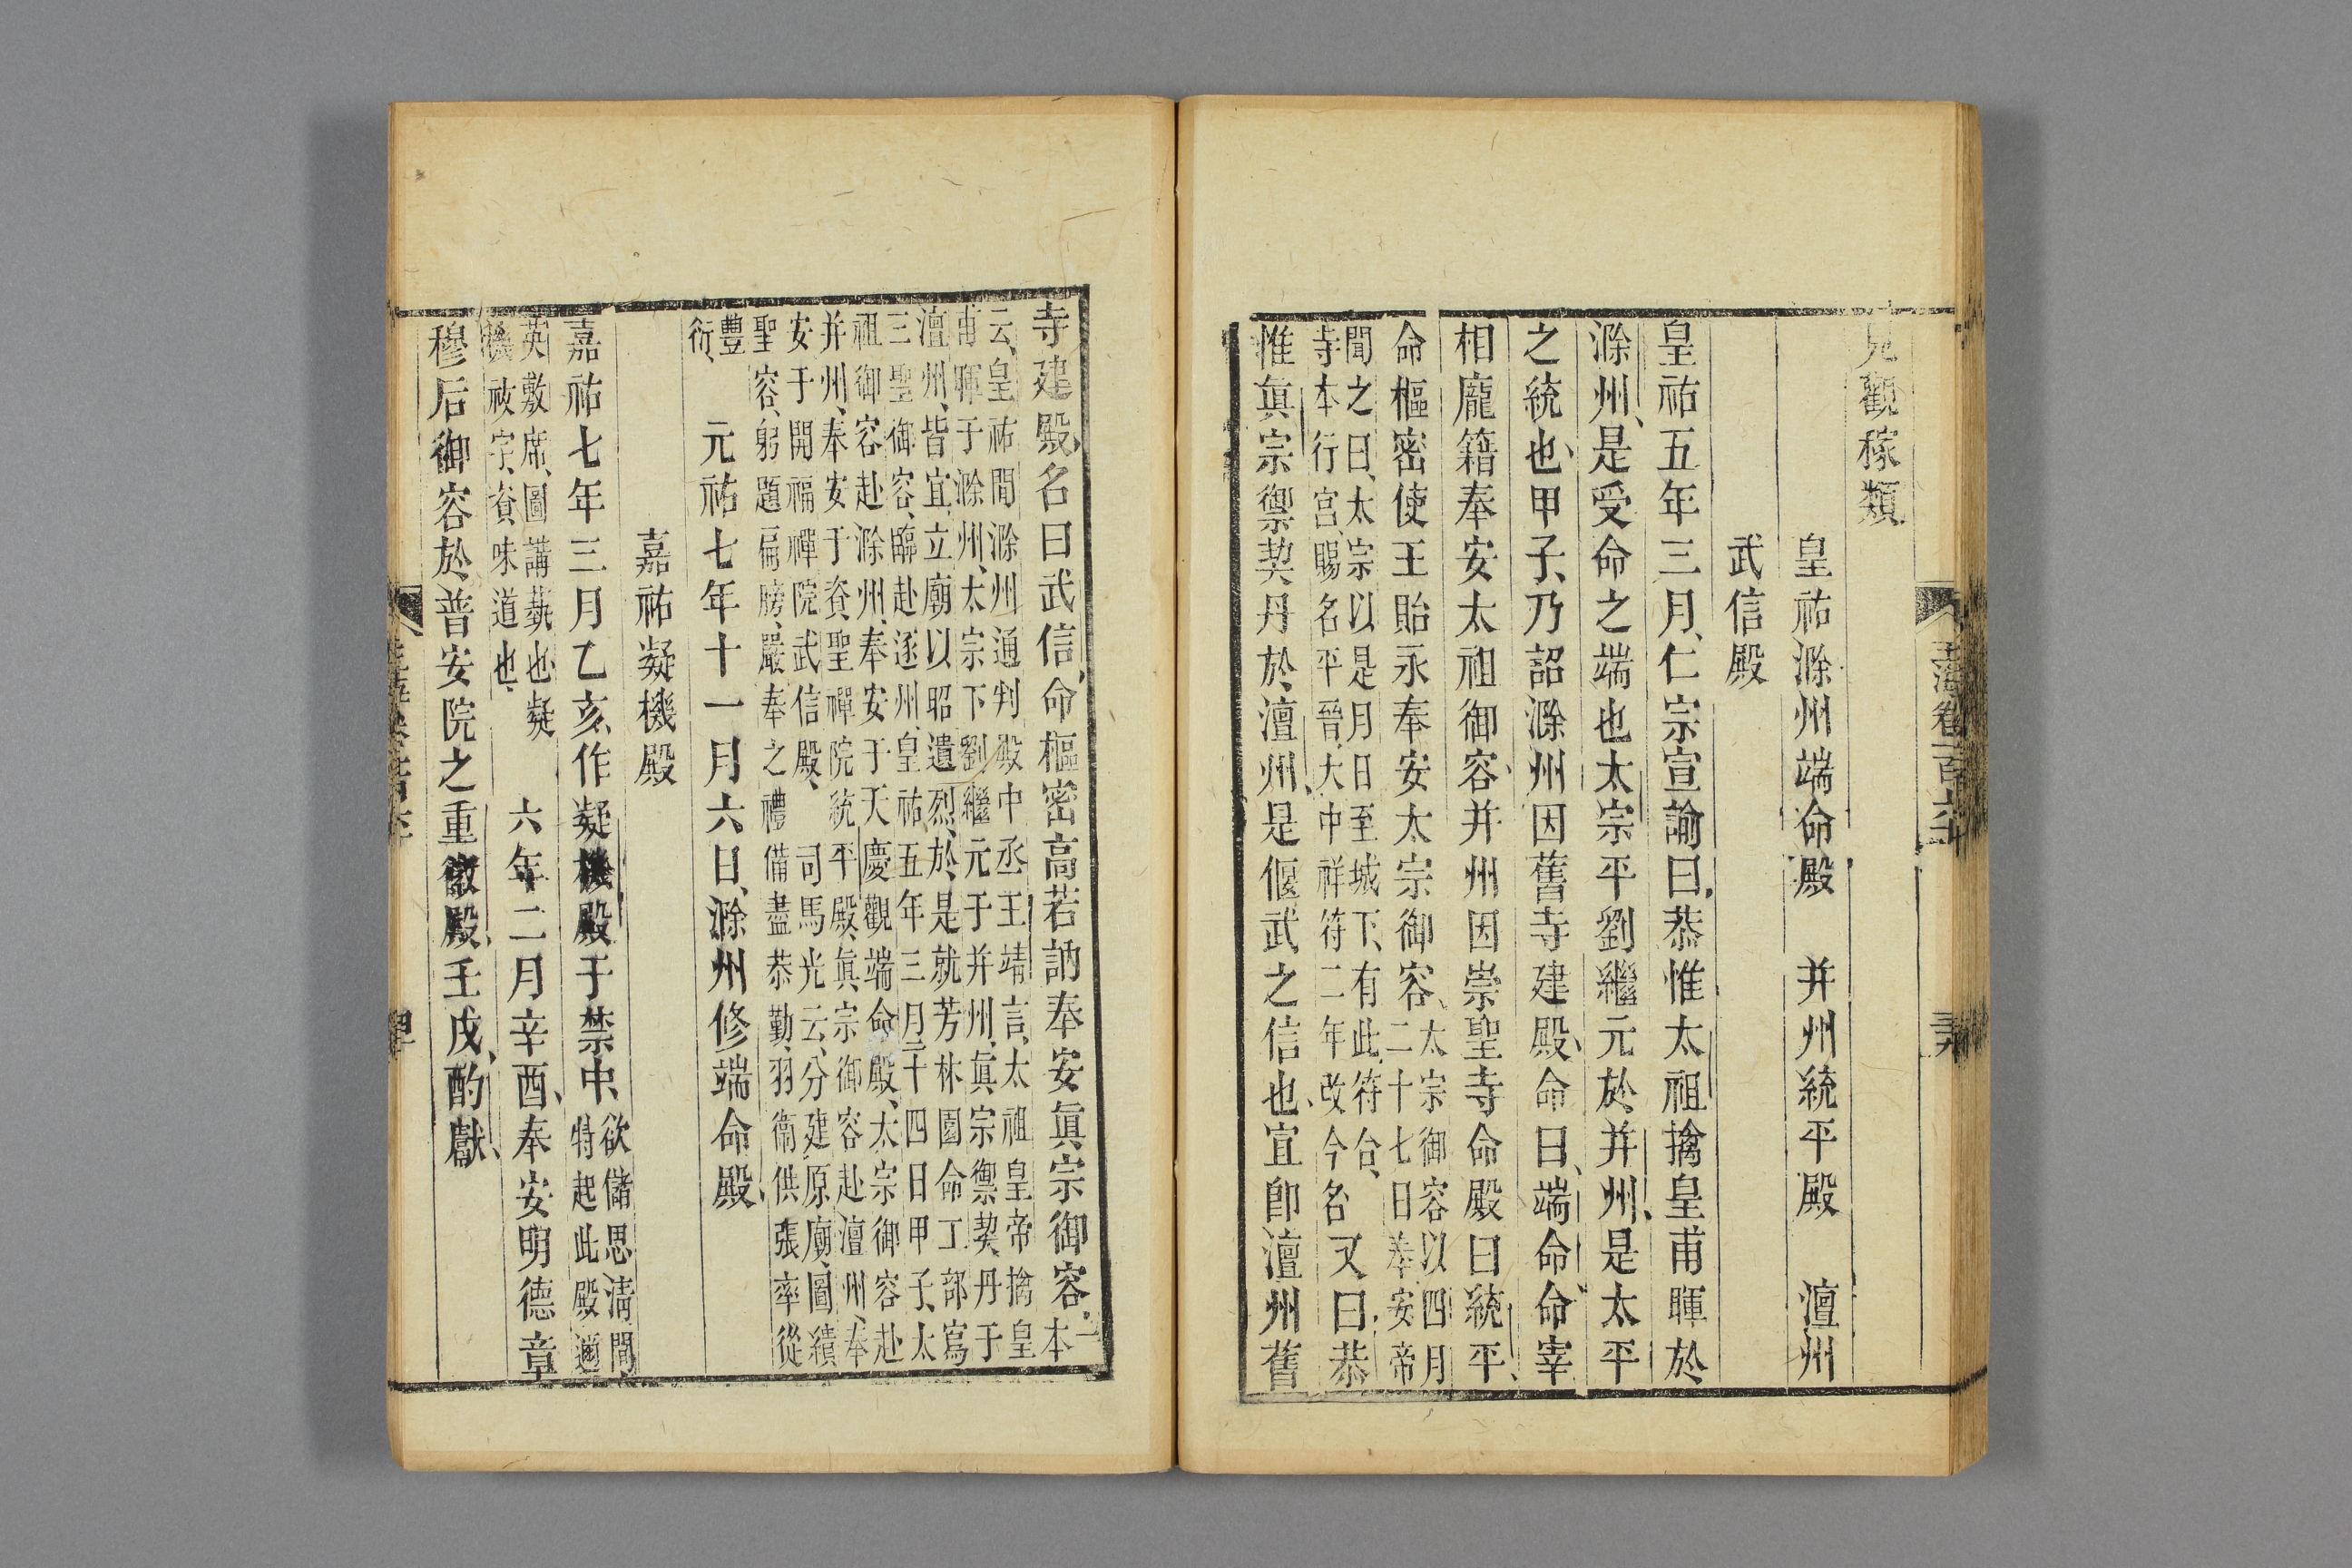 見觀稼類
皇祐滁州端命殿　并州統平殿　澶州
武信殿
皇祐五年三月仁宗宣諭曰恭惟太祖擒皇甫暉於
滁州是受命之端也太宗平劉繼元於并州是太平
之統也甲子乃詔滁州因舊寺建殿命曰端命命宰
相龐籍奉安太祖御容并州因崇聖寺命殿曰統平
命樞密使王貽永奉安太宗御容太宗御容以四月
二十七日奉安帝
聞之曰太宗以是月日至城下有此符合
寺本行宮賜名平晉大中祥符二年改今名又曰恭
惟眞宗禦契丹於澶州是偃武之信也宜卽澶州舊
玉海卷一百六十
寺建殿名曰武信命樞密高若訥奉安眞宗御容一本
云皇祐間滁州通判殿中丞王靖言太祖皇帝擒皇
甫暉于滁州太宗下劉繼元于并州眞宗禦契丹于
澶州皆宜立廟以昭遺烈於是就芳林園命工部寫
三聖御容臨赴逐州皇祐五年三月二十四日甲子太
祖御容赴滁州奉安于天慶觀端命殿太宗御容赴
并州奉安于資聖禪院統平殿眞宗御容赴澶州奉
安于開福禪院武信殿　司馬光云分建原廟圖繢
聖容躬題扁牓嚴奉之禮備盡恭勤羽衞供張率從
豐
衍　元祐七年十一月六日滁州修端命殿
嘉祐凝機殿
嘉祐七年三月乙亥作凝機殿于禁中欲儲思清閒
特起此殿邇
英敷席圖講藝也凝
機祓宇資味道也　六年二月辛酉奉安明德章
穆后御容於普安院之重徽殿壬戌酌獻